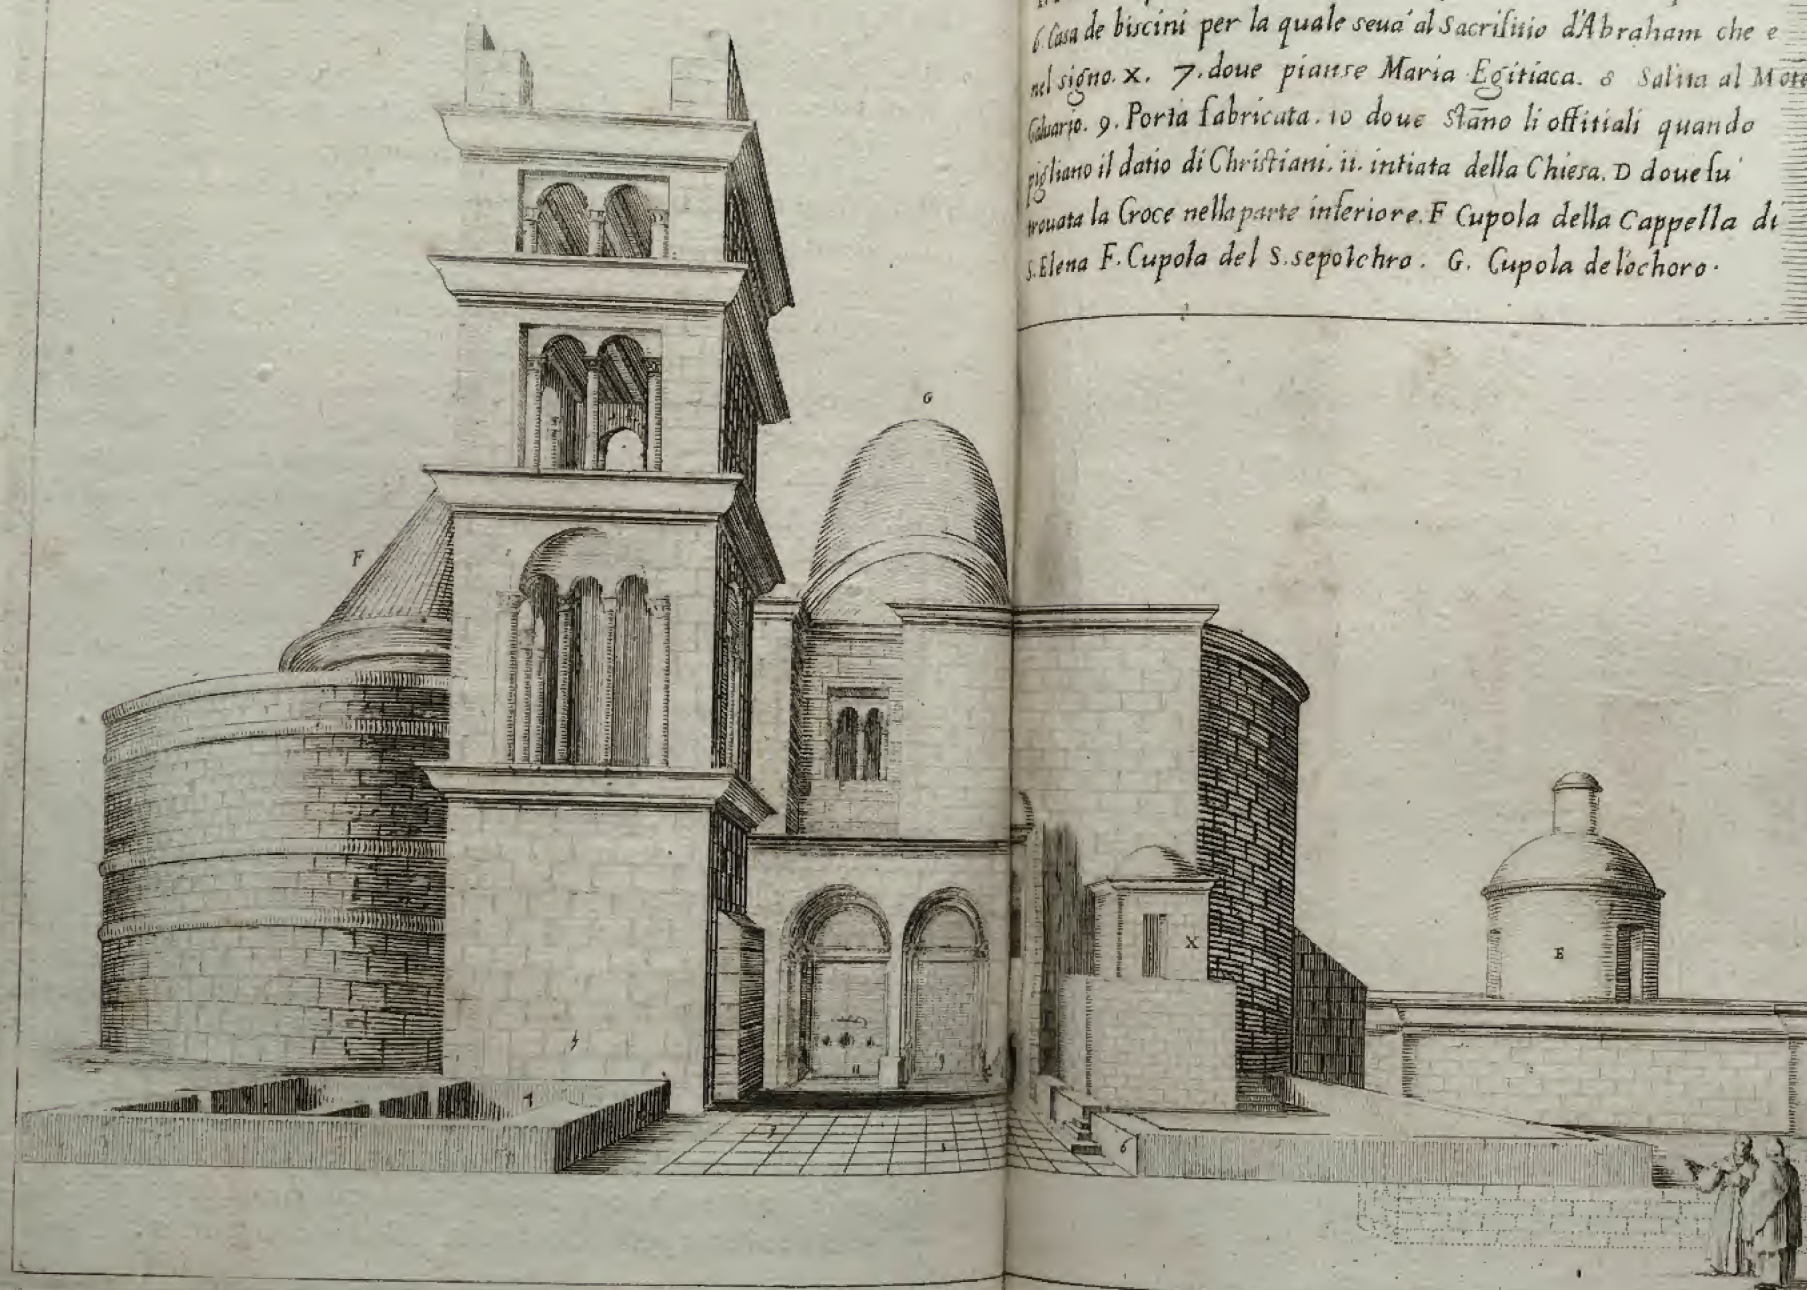 6. Casa de biscini per la quale seua' al Sacrifitio d'Abraham che e
nel signo. X. 7. doue pianse Maria Egitiaca. 8 Salita al Mote
Caluario. 9. Porta fabricata. 10 doue stāno li offitiali quando
pigliano il datio di Christiani. ii. intiata della Chiesa. D doue fu'
trouata la Croce nella parte inferiore. F Cupola della Cappella di
S. Elena F. Cupola del S. sepolchro. G. Cupola de lochoro.
G
F
X
E
11
9
7
3
6